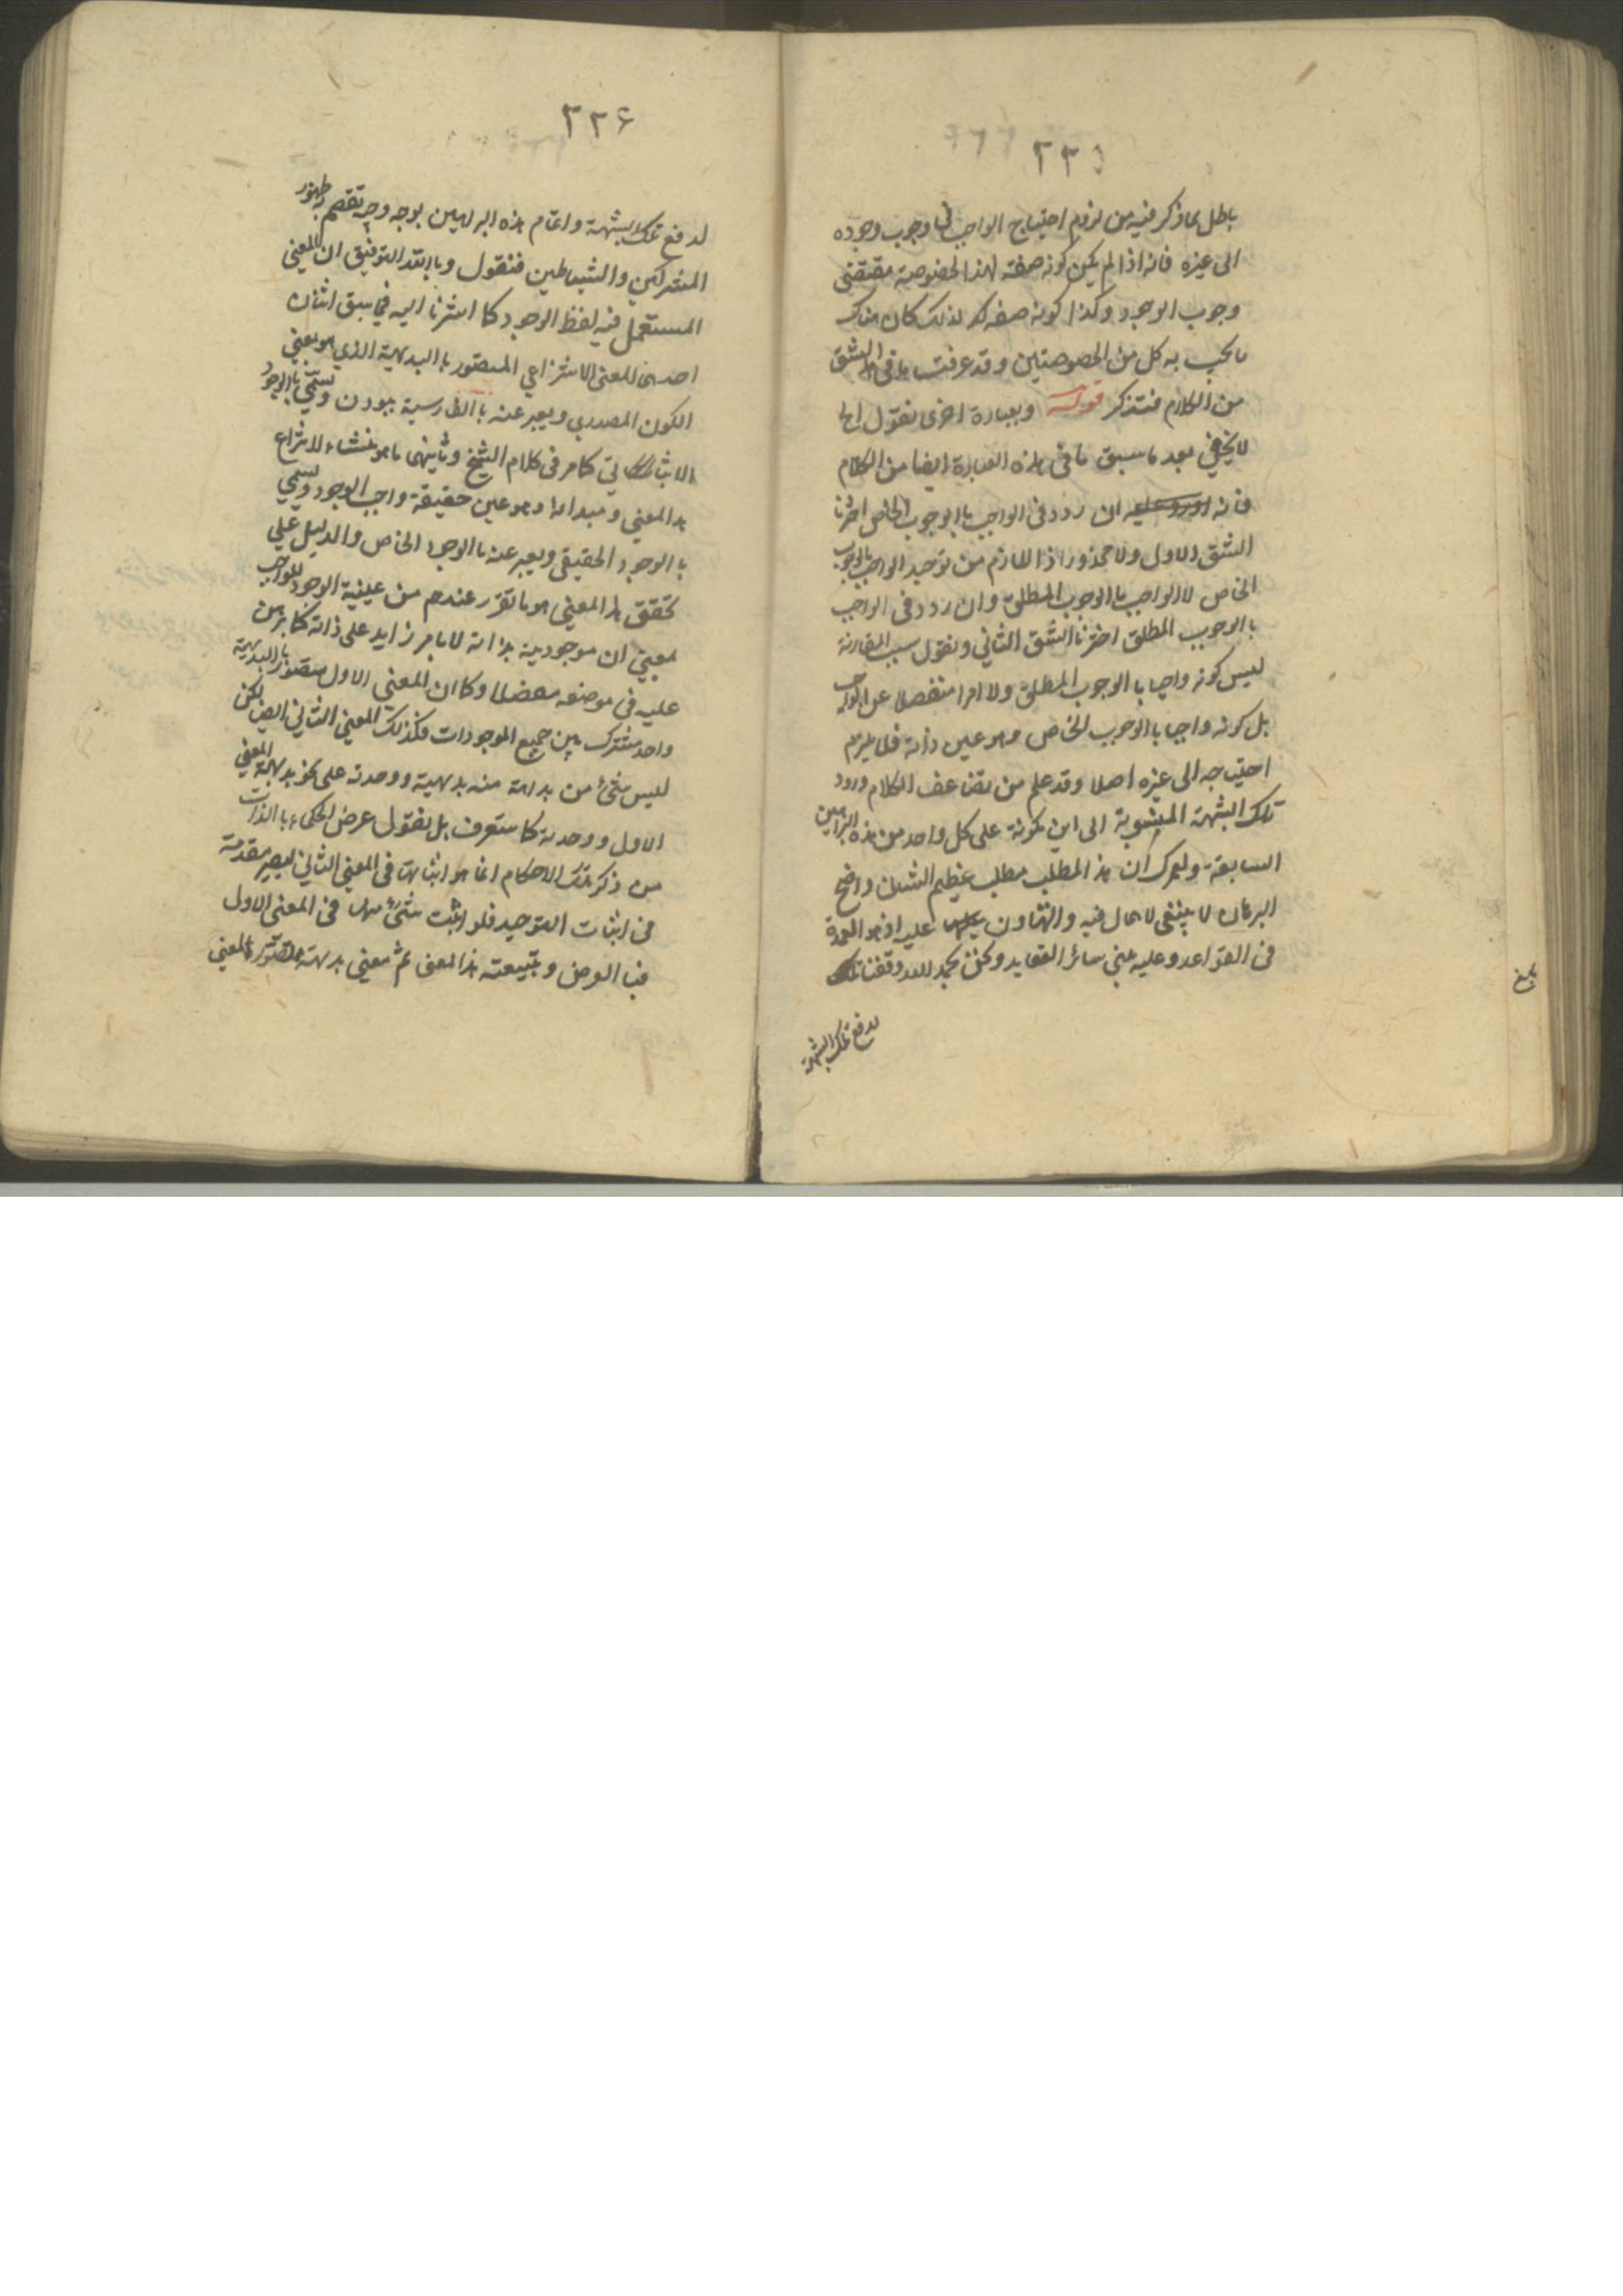 ٢٣٥
باطل بما ذكر فيه من لزوم احتياج الواجب في وجوب وجوده
الى غيره فانه اذا لم يكن كونه صفته لهذا الخصوصية مقتضى
وجوب الوجود وكذا كونه صفه لذلك كان هناك
ما يجب به كل من الخصوصتين وقد عرفت ما فى هذا الشق
من الكلام فتذكر قوله وبعبارة اخرى نقول الخ
لا يخفى بعد ما سبق ما فى هذه العبارة ايضا من الكلام
فانه ان ردد فى الواجب باالوجوب الخاص اخترنا
الشق الاول ولا محذور اذ اللازم من توحيد الواجب بالوجوب
الخاص لا الواجب باالوجوب المطلق وان ردد فى الواجب
باالوجوب المطلق اخترنا الشق الثاني ونقول سبب المقارنة
ليس كونه واجبا باالوجوب المطلق ولا امرا منفصلا عن الواجب
بل كونه واجبا باالوجوب الخاص وهو عين ذاته فلا يلزم
احتياجه الى غيره اصلا وقد علم من تضاعف الكلام ورود
تلك الشبهة المنسوبة الى ابن كمونة على كل واحد من هذه البراهين
السابقة ولعمرك ان هذا المطلب مطلب عظيم الشان واضح
البرهان لا ينبغى لاهمال فيه والتهاون عليه اذ هو العمدة
فى القواعد وعليه مبنى سائر العقايد ونحن بحمد الله وفقنا
لدفع تلك الشبهة
بلغ
٢٣۶
لدفع تلك الشبهة واتمام هذه البراهين بوجه وجيه تقصم به ظهور
المشركين والشياطين فنقول وبالله التوفيق ان المعنى
المستعمل فيه لفظ الوجود كما اشرنا اليه في سبق اثنان
احدهما المعنى الانتزاعي المتصور باالبديهية الذي هو بمعنى
الكون المصدري ويعبر عنه باالفارسية ببودن ويسمى باالوجود
الاثباتي كما مر فى كلام الشيخ وثانيهما ما هو منشاء لانتزاع
هذا المعنى ومبداله وهو عين حقيقة واجب الوجود ويسمى
باالوجود الحقيقى ويعبر عنه باالوجود الخاص والدليل على
تحقق هذا المعنى هو ما تقرر عندهم من عينية الوجود للواجب
بمعنى ان موجوديته بذاته لا بامر زايد على ذاته كما برهن
عليه فى موضعه مفصلا وكما ان المعنى الاول متصور باالبديهية
واحد مشترك بين جميع الموجودات فكذلك المعنى الثاني ايضا لكن
ليس شئ من بداهته منه بديهية ووحدته على نحو بديهية المعنى
الاول ووحدته كما ستعرف بل نقول غرض الحكماء باالذات
من ذكر تلك الاحكام انما هو اثباتها فى المعنى الثاني ليصير مقدمة
فى اثبات التوحيد فلو اثبت شئ منها فى المعنى الاول
فباالعرض وبتبعية هذا المعنى ثم معنى بديهته المعنى